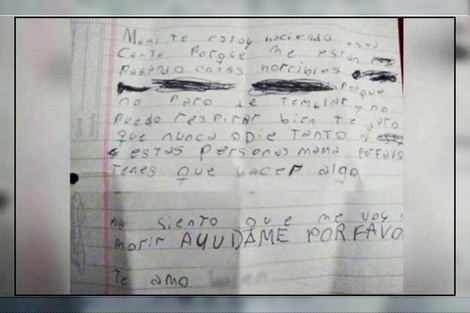 Mami te estoy haciendo esta
Carta Porque me estan
Pasando cosas horribles
Porque
no Paro de TembLar y no
Puedo respirar bien te juro
que nunca odie TANTO a
estas Personas mama PorFavo
Tenes que hacer algo
me voy
morir AYUDAME PORFAVO
Te amo